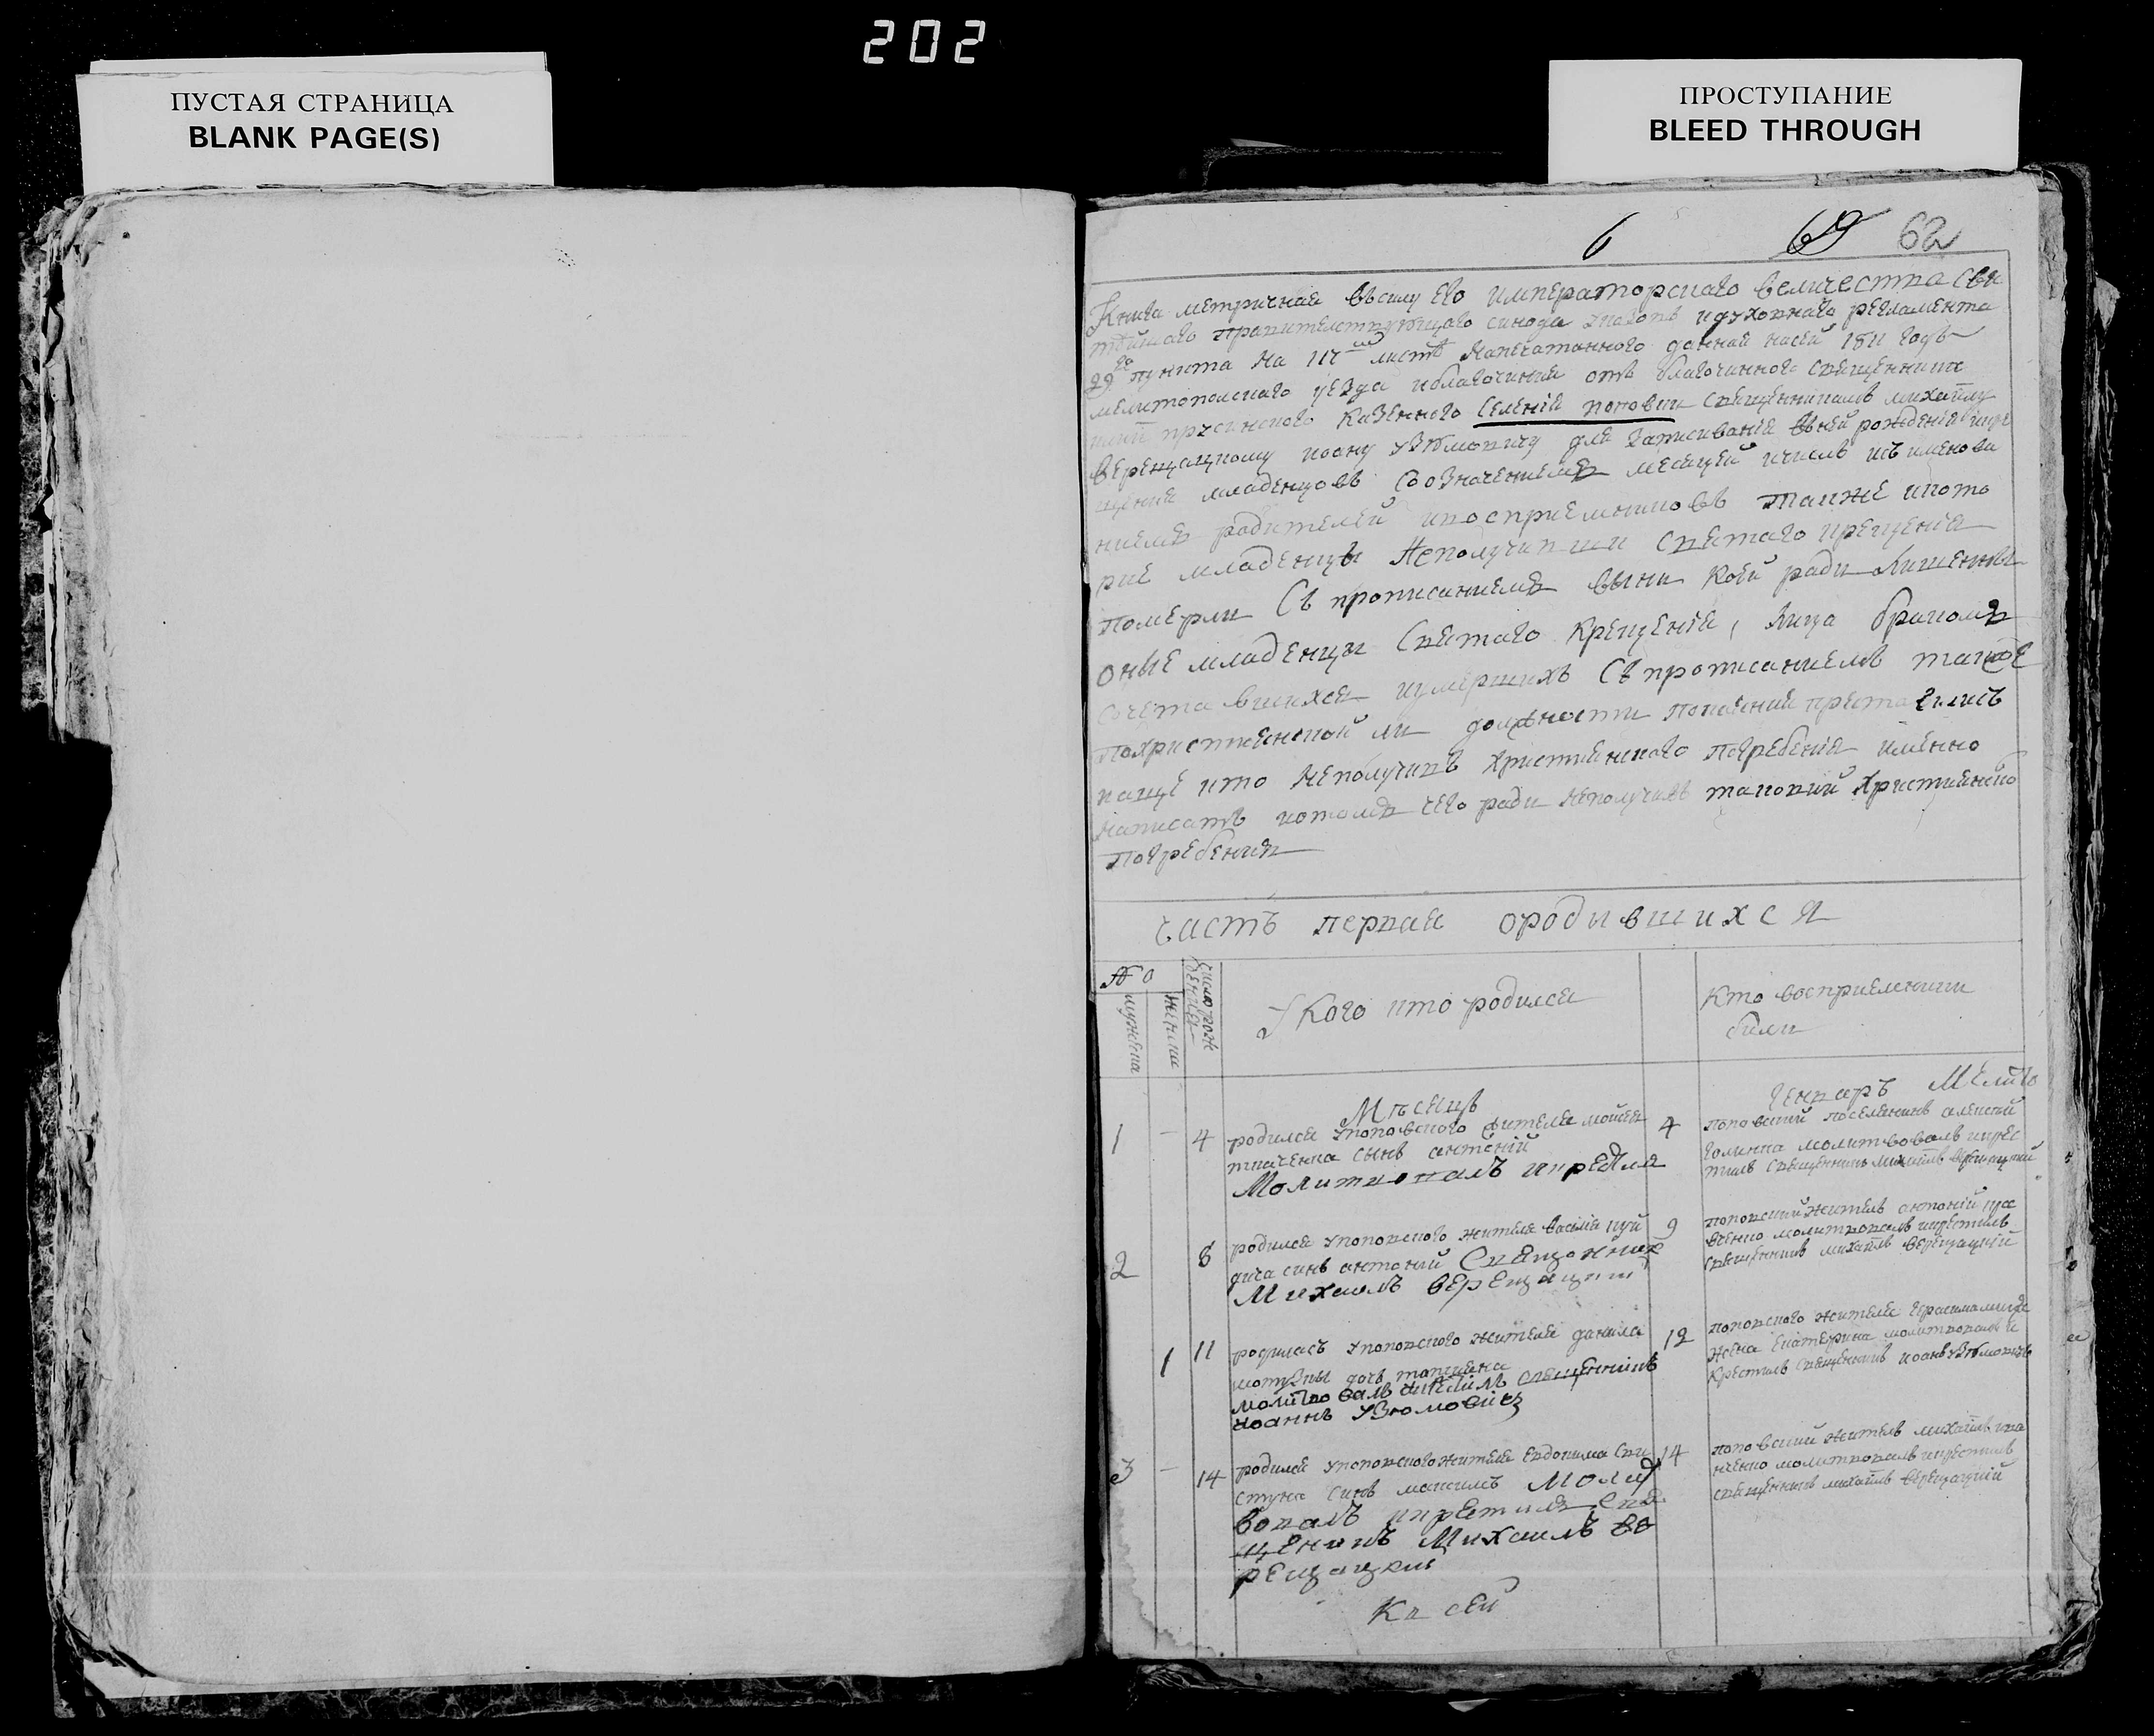 202
ПУСТАЯ СТРАНИЦА
BLANK PAGE(S)
ПРОСТУПАНИЕ
BLEED THROUGH
6 69 62
Книга метричная въ силу Его императорскаго величества свя
тѣйшаго правителствующаго синода указовъ и духовнаго регламента
29го пункта на листѣ напечатанного данная на сей 1811 годъ
мелитополского уезда и благочиния отъ благочинного священника
казенного селенія поповки священникамъ михаилу
верещацкому иоану узюмовичу для записиваніе въ ней рожденія и кре
щения младенцовъ со означениемъ месяцей и числъ и съ именова
ниемъ родителей и восприемниковъ также и кото
рие младенцы не получивши святаго крещенія
померли съ прописаниемъ вини коей ради лишенны
оные младенцы святаго крещеніе, лица бракомъ
сочетавшихся и умершихъ съ прописаниемъ также
по християнской ли должности
паче кто не получивъ християнского погребенія именно
написать и о томъ чего ради не получилъ таковий християнско
погребения
часть первая о родившихся
№ о
мужеска
женски
число рож
дения
У кого кто родился
кто восприемники
били
Мѣсяцъ
Генваръ
1 - 4 родился у поповского жителя мойсея
ткаченка сынъ антоній
Молитвовалъ и крестилъ
4 поповский поселенинъ алексей
голинка молитвовалъ и крес
тилъ священникъ михаилъ верещацкий
2 8 родился у поповского жителя василия куй
дича синъ антоний Священник
Михаилъ верещацкий
9 поповский житель антоній
молитвовалъ и крестилъ
священникъ михаилъ верещацкій
1 11 родиласъ у поповского жителя данила
дочъ татияна
молитвовалъ и крестилъ священникъ
иоаннъ узюмовичъ
12 поповского жителя герасима
жена екатерина молитвовалъ и
крестилъ священникъ иоанъ узюмовичъ
3 - 14 родился у поповского жителя евдокима сви
стуна синъ максимъ Молит
вовалъ и крестилъ свя
щеникъ Михаилъ ве
рещацкий
14 поповский житель михаилъ ива
ченко молитвовалъ и крестилъ
священникъ михаилъ верещацкий
Къ сей